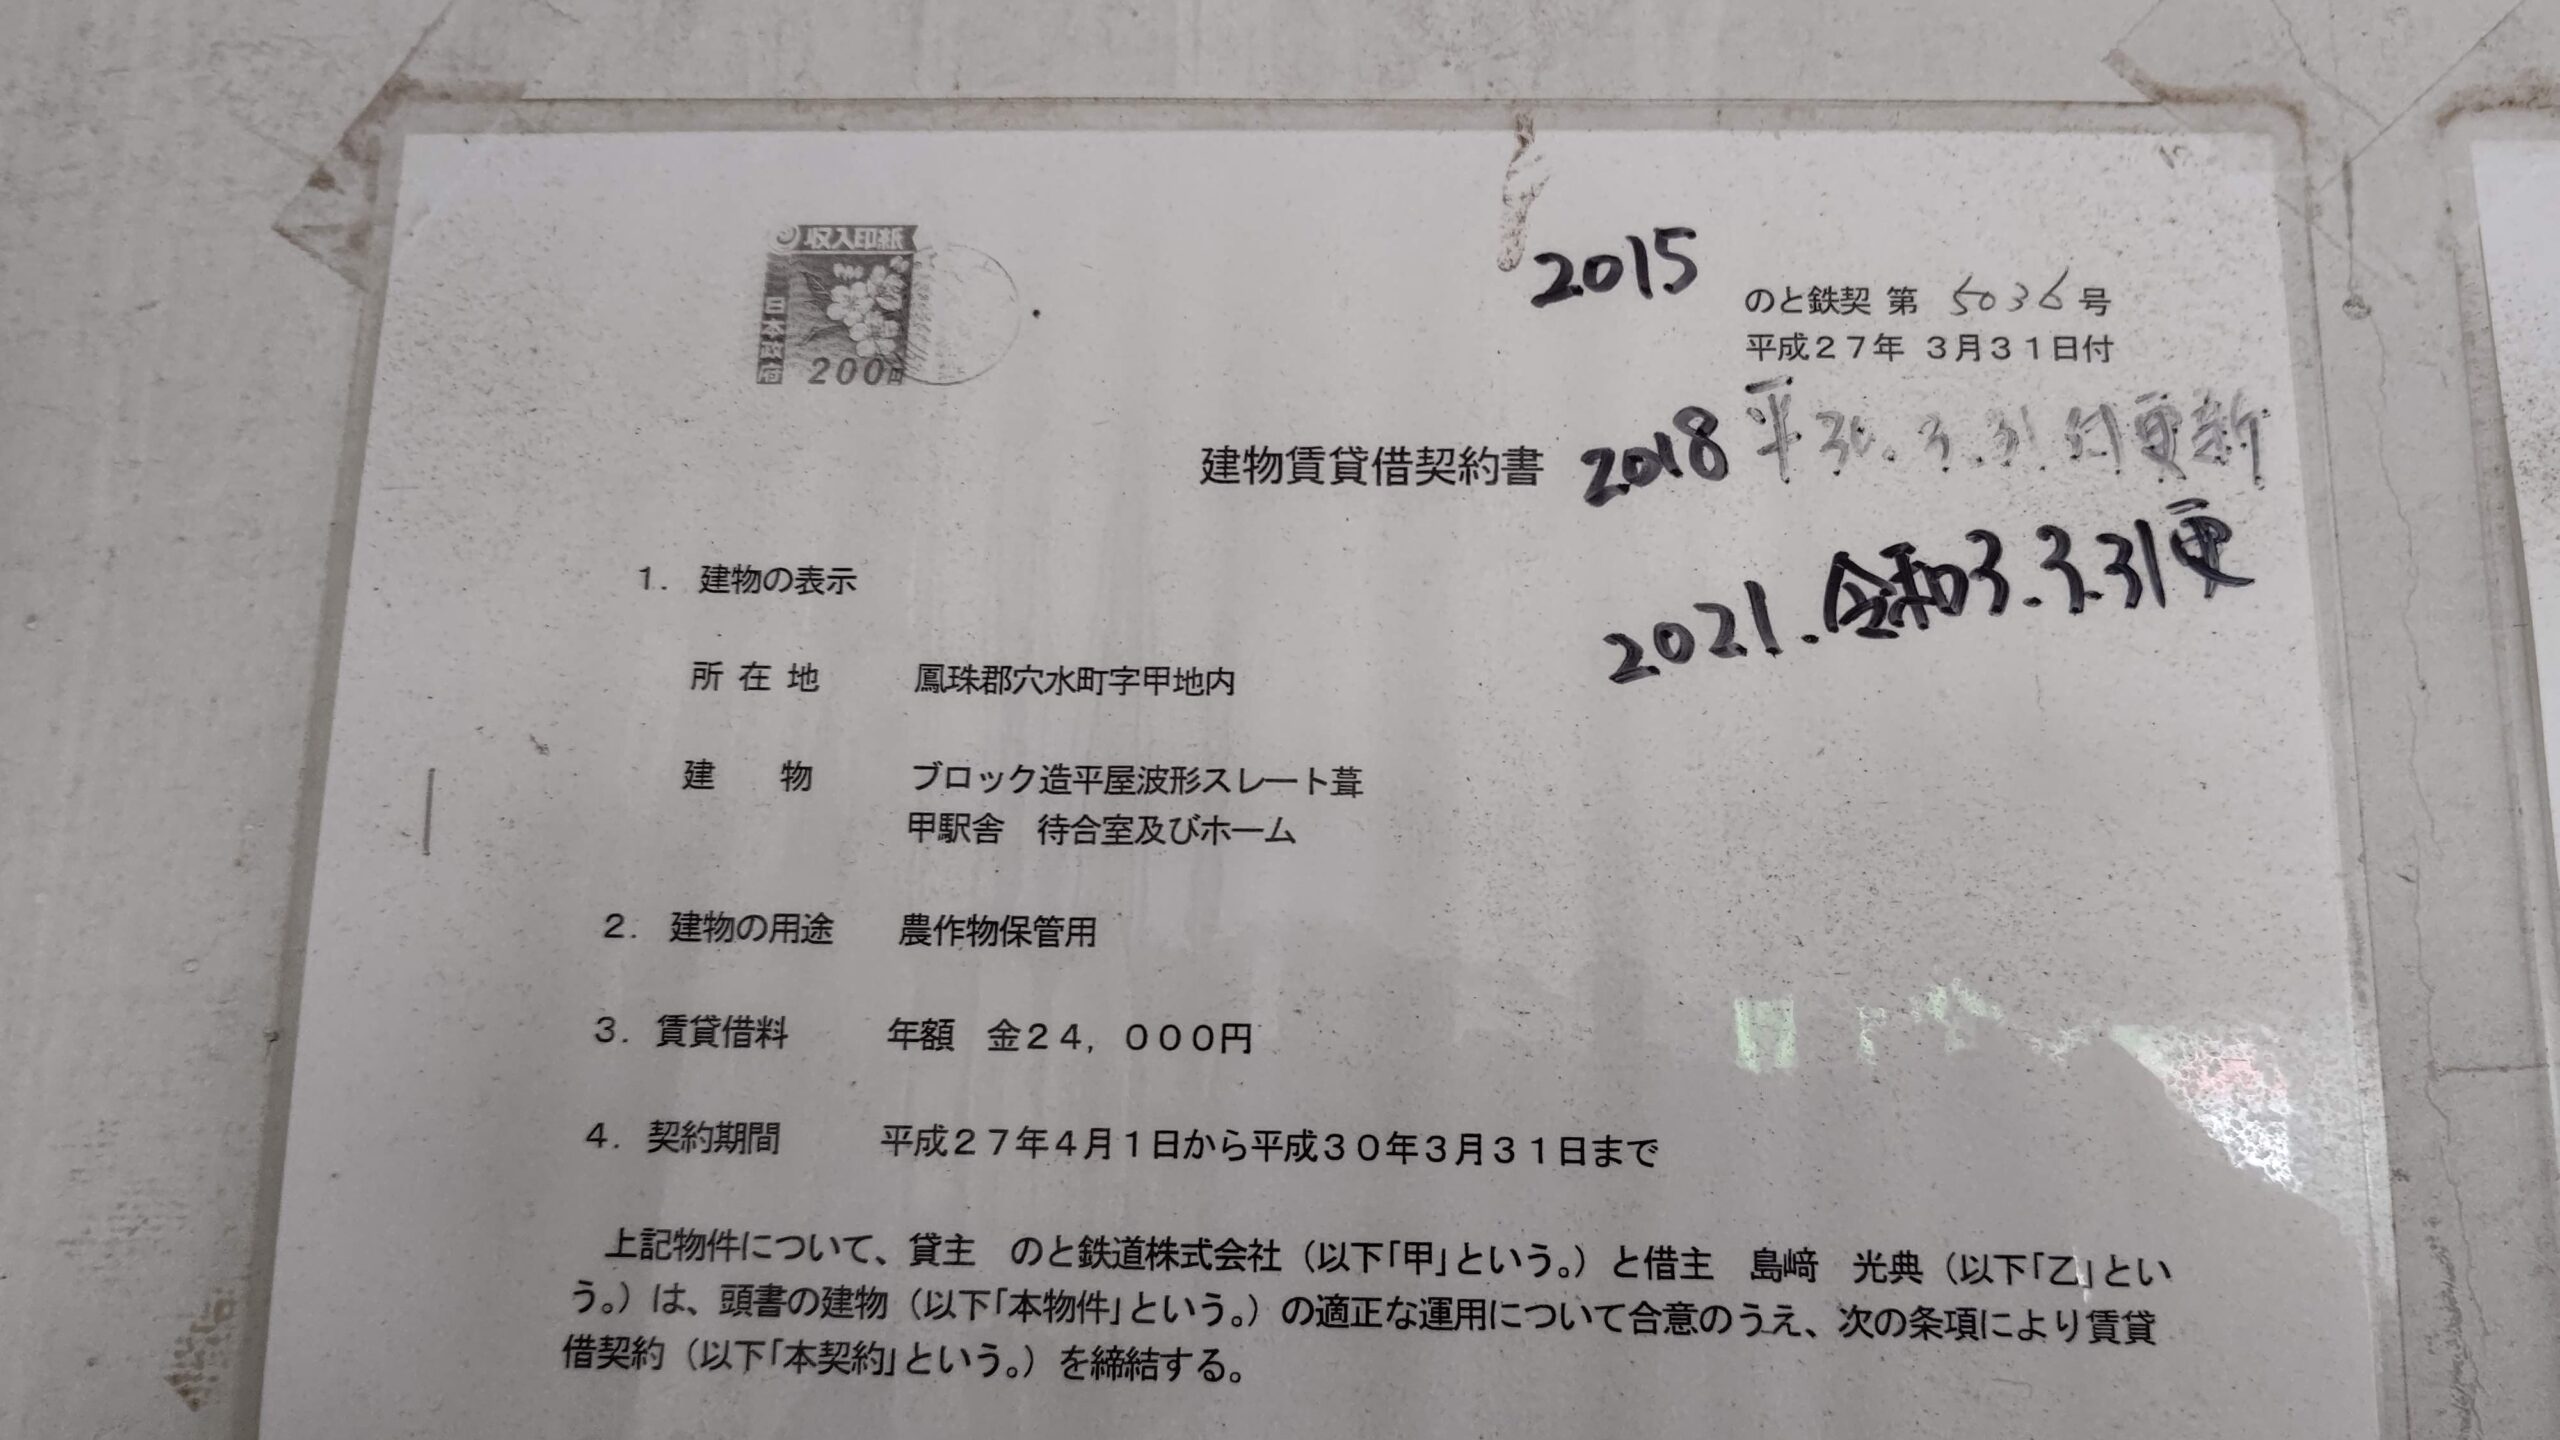 収入印紙
日本政府
200円
2015
のと鉄契 第 5036 号
平成27年 3月31日付
建物賃貸借契約書
2018 平30.3.31.付更新
2021.令和3.3.31更
1. 建物の表示
所 在 地 鳳珠郡穴水町字甲地内
建 物 ブロック造平屋波形スレート葺
甲駅舎 待合室及びホーム
2. 建物の用途 農作物保管用
3. 賃貸借料 年額 金24,000円
4. 契約期間 平成27年4月1日から平成30年3月31日まで
上記物件について、貸主 のと鉄道株式会社(以下「甲」という。)と借主 島﨑 光典(以下「乙」とい
う。)は、頭書の建物(以下「本物件」という。)の適正な運用について合意のうえ、次の条項により賃貸
借契約(以下「本契約」という。)を締結する。